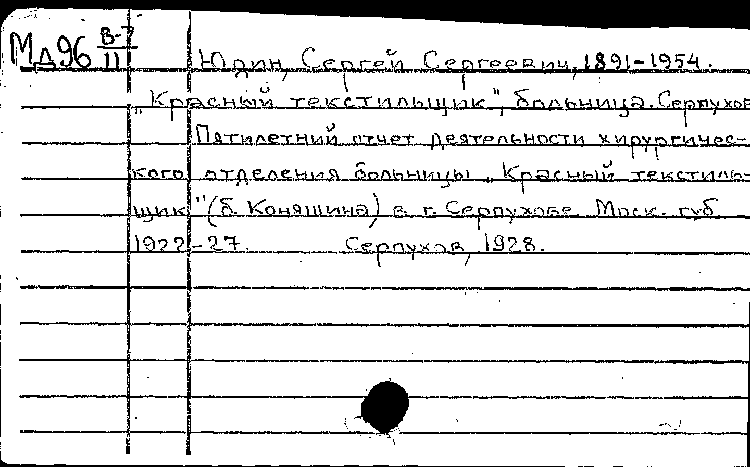 Мд96 В-7/11
Юдин, Сергей Сергеевич, 1891-1954.
„Красный текстильщик", больница. Серпухов
Пятилетний отчет деятельности хирургичес-
кого отделения больницы „Красный текстиль-
щик" (б. Коняшина) в г. Серпухове Моск. губ
1922-27. Серпухов, 1928.